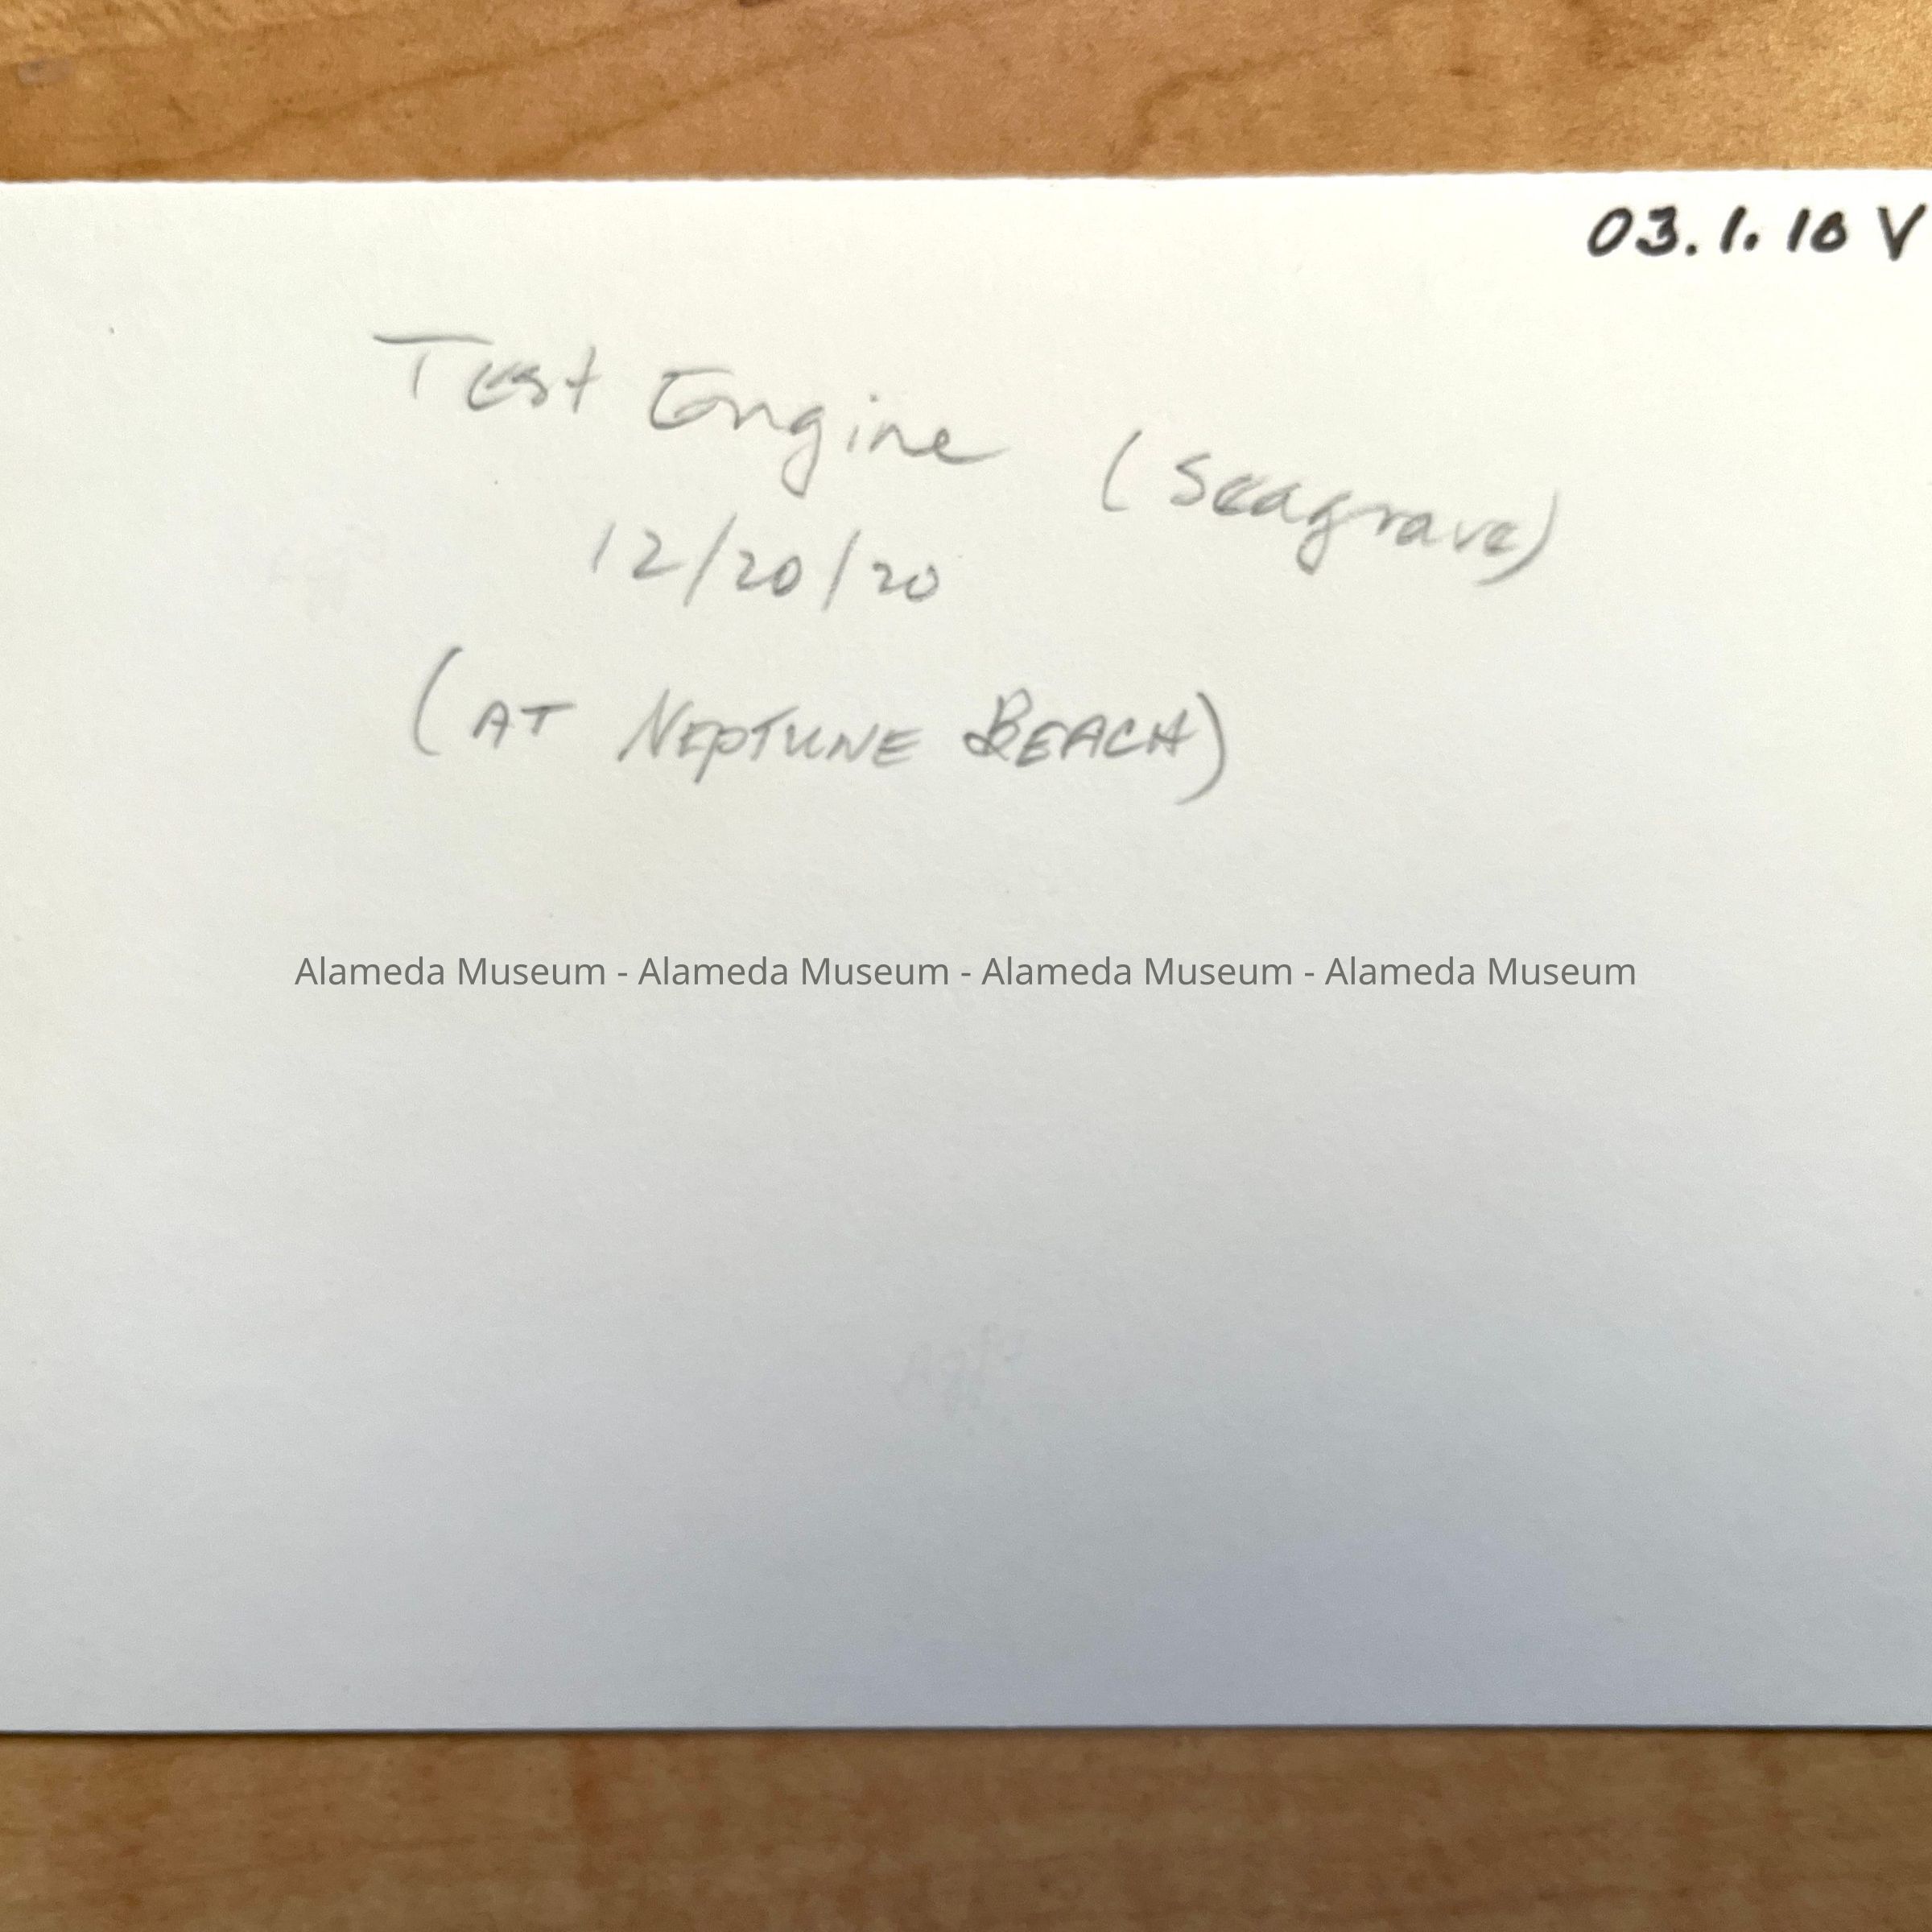 03.1.10 V
Test Engine (Seagrave)
12/20/20
(AT NEPTUNE BEACH)
Alameda Museum - Alameda Museum - Alameda Museum - Alameda Museum